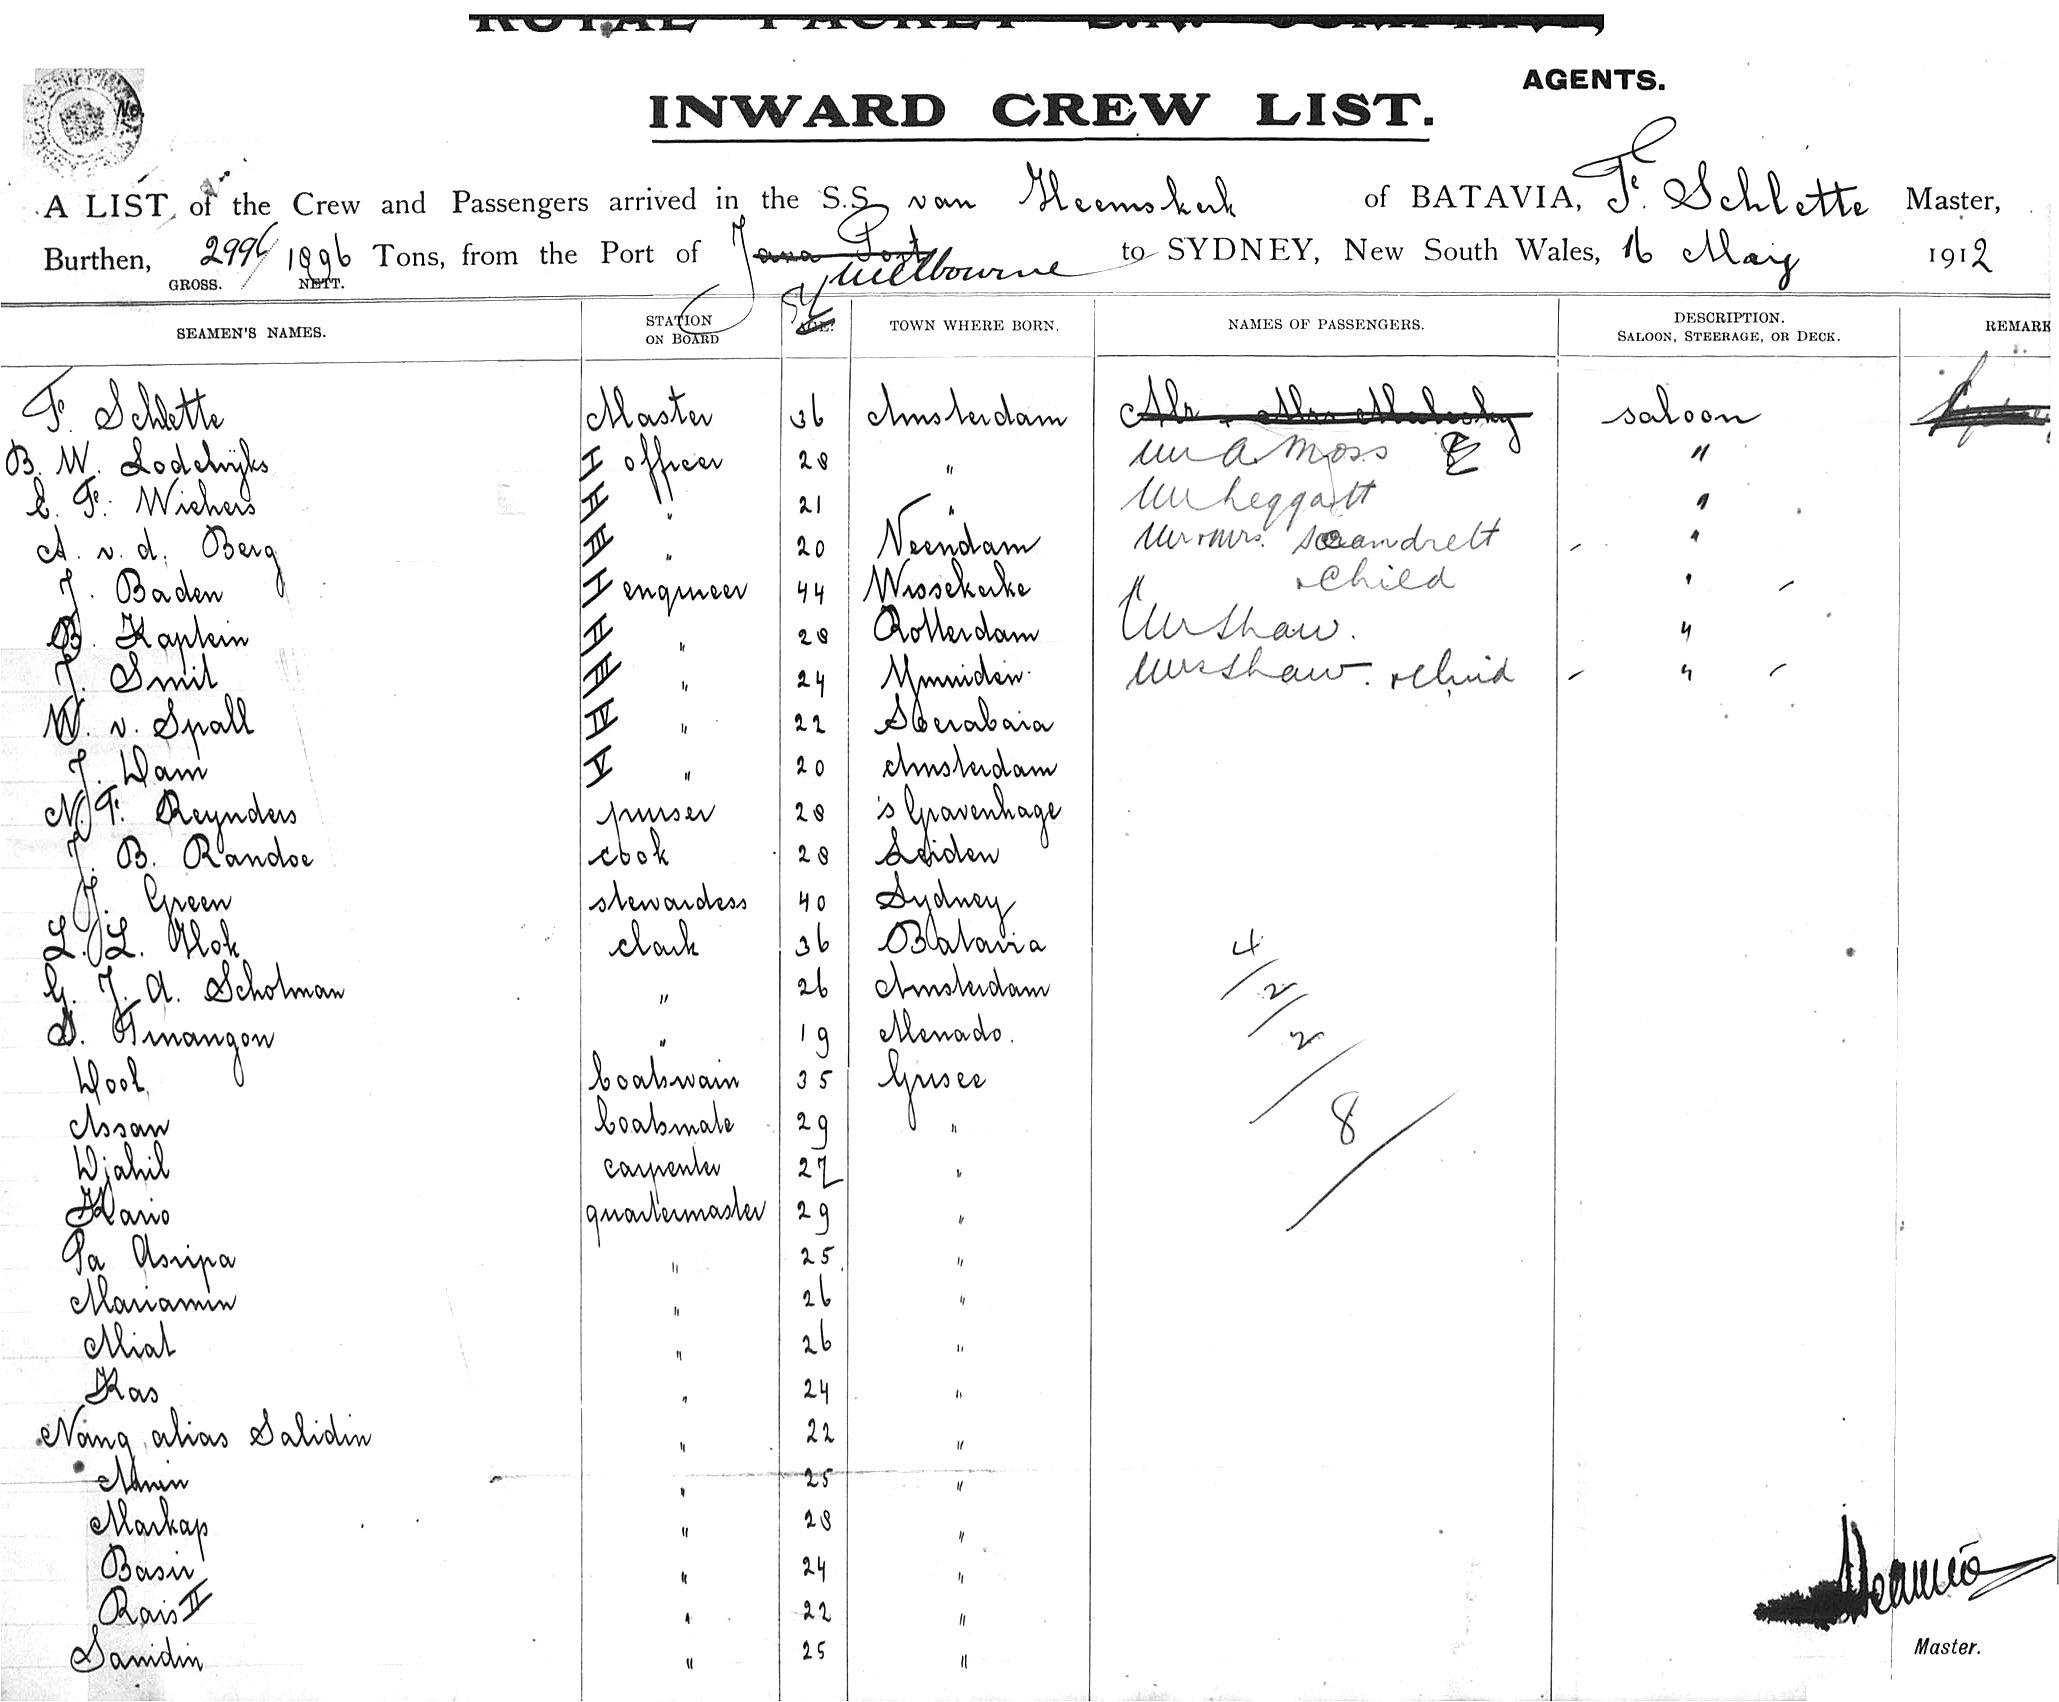 ROYAL PACKET S.N. COMPANY,
AGENTS.
INWARD CREW LIST.
A LIST of the Crew and Passengers arrived in the S.S. van Heemskerk of BATAVIA, F. Schlette Master,
Burthen, 2996 1896 Tons, from the Port of Java Port Melbourne to SYDNEY, New South Wales, 16 May 1912
GROSS. NETT.
SEAMEN'S NAMES. STATION ON BOARD AGE. TOWN WHERE BORN. NAMES OF PASSENGERS. DESCRIPTION. SALOON, STEERAGE, OR DECK. REMARK
F. Schlette Master 36 Amsterdam Mr Mrs saloon
B. W. Lodewijks I officer 28 " Mr A. Moss "
C. F. Wichers II " 21 " Mr Leggatt "
A. v. d. Berg III " 20 Veendam Mr & Mrs. Scandrett "
J. Baden I engineer 44 Wissekerke " & Child "
B. Kaptein II " 28 Rotterdam Mr Shaw. "
J. Smit III " 24 Ymuiden Mrs Shaw. & Child "
W. v. Spall IV " 22 Soerabaia
J. Dam V " 20 Amsterdam
N. F. Reynders purser 28 's Gravenhage
J. B. Randoe cook 28 Leiden
J. Green stewardess 40 Sydney
L. L. Hok clark 36 Batavia 4/
G. J. A. Scholman " 26 Amsterdam 2/
S. Tinangon " 19 Menado. 2/
Dool boatswain 35 Grisee
Assan boatsmate 29 " 8/
Djahil carpenter 27 "
Kario quartermaster 29 "
Pa Asripa " 25 "
Mariamin " 26 "
Miat " 26 "
Kas " 24 "
Nang alias Salidin " 22 "
Amin " 25 "
Markap " 28 "
Basir " 24 "
Rais II " 22 "
Sanidin " 25 "
Master.